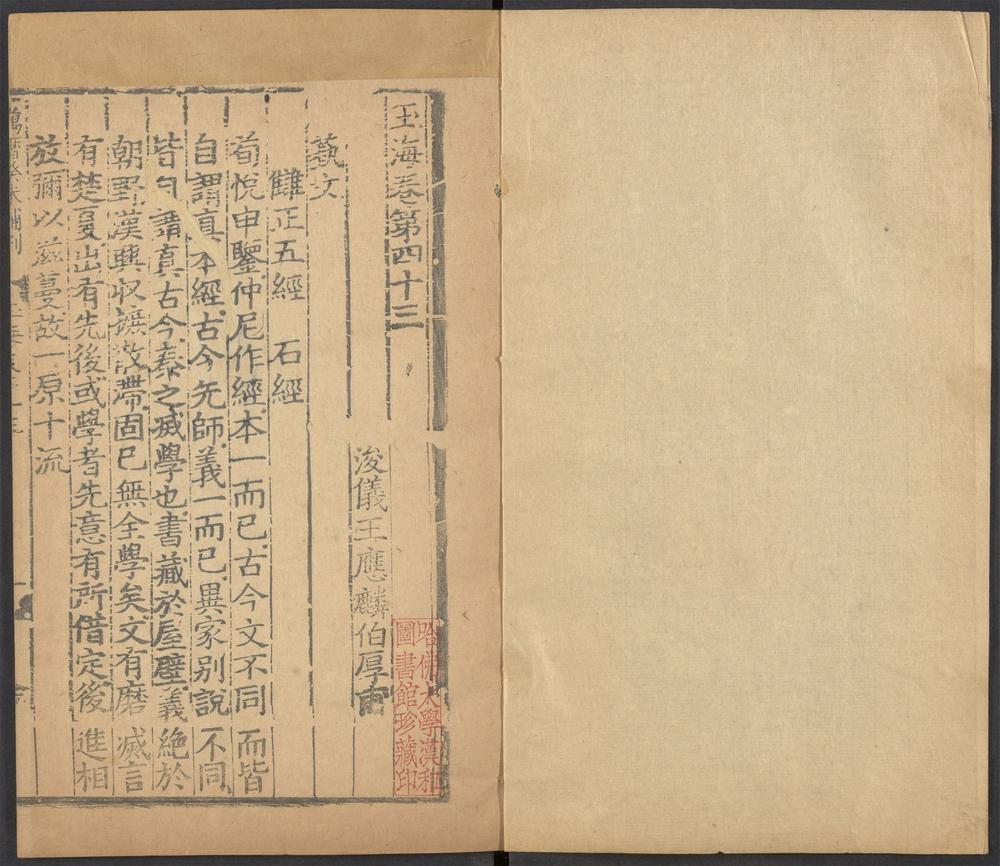 玉海卷第四十三
浚儀王應麟伯厚甫
藝文
讎正五經　石經
荀悅申鑒仲尼作經本一而已古今文不同而皆
自謂真本經古今先師義一而已異家別說不同
皆自謂真古今秦之滅學也書藏於屋壁義絶於
朝野漢興收摭散滯固已無全學矣文有磨滅言
有楚夏出有先後或學者先意有所借定後進相
放彌以滋蔓故一原十流
哈佛大學漢和
圖書館珍藏印